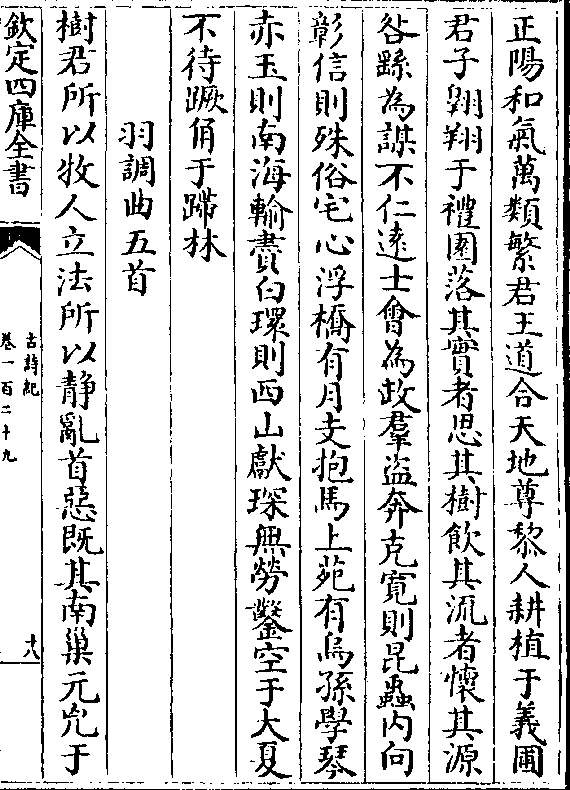 正陽和氣萬類繁君王道合天地尊黎人耕植于義圃
君子翱翔于禮園落其實者思其樹飲其流者懷其源
咎繇為謀不仁逺士㑹為政羣盜奔克寛則昆蟲内向
彰信則殊俗宅心浮橋有月支抱馬上苑有烏孫學琴
赤玉則南海輸賮白環則西山獻琛無勞鑿空于大夏
不待蹶角于蹛林
羽調曲五首
樹君所以牧人立法所以靜亂首惡既其南巢元凶于
欽定四庫全書
古詩紀
卷一百二十九
十八